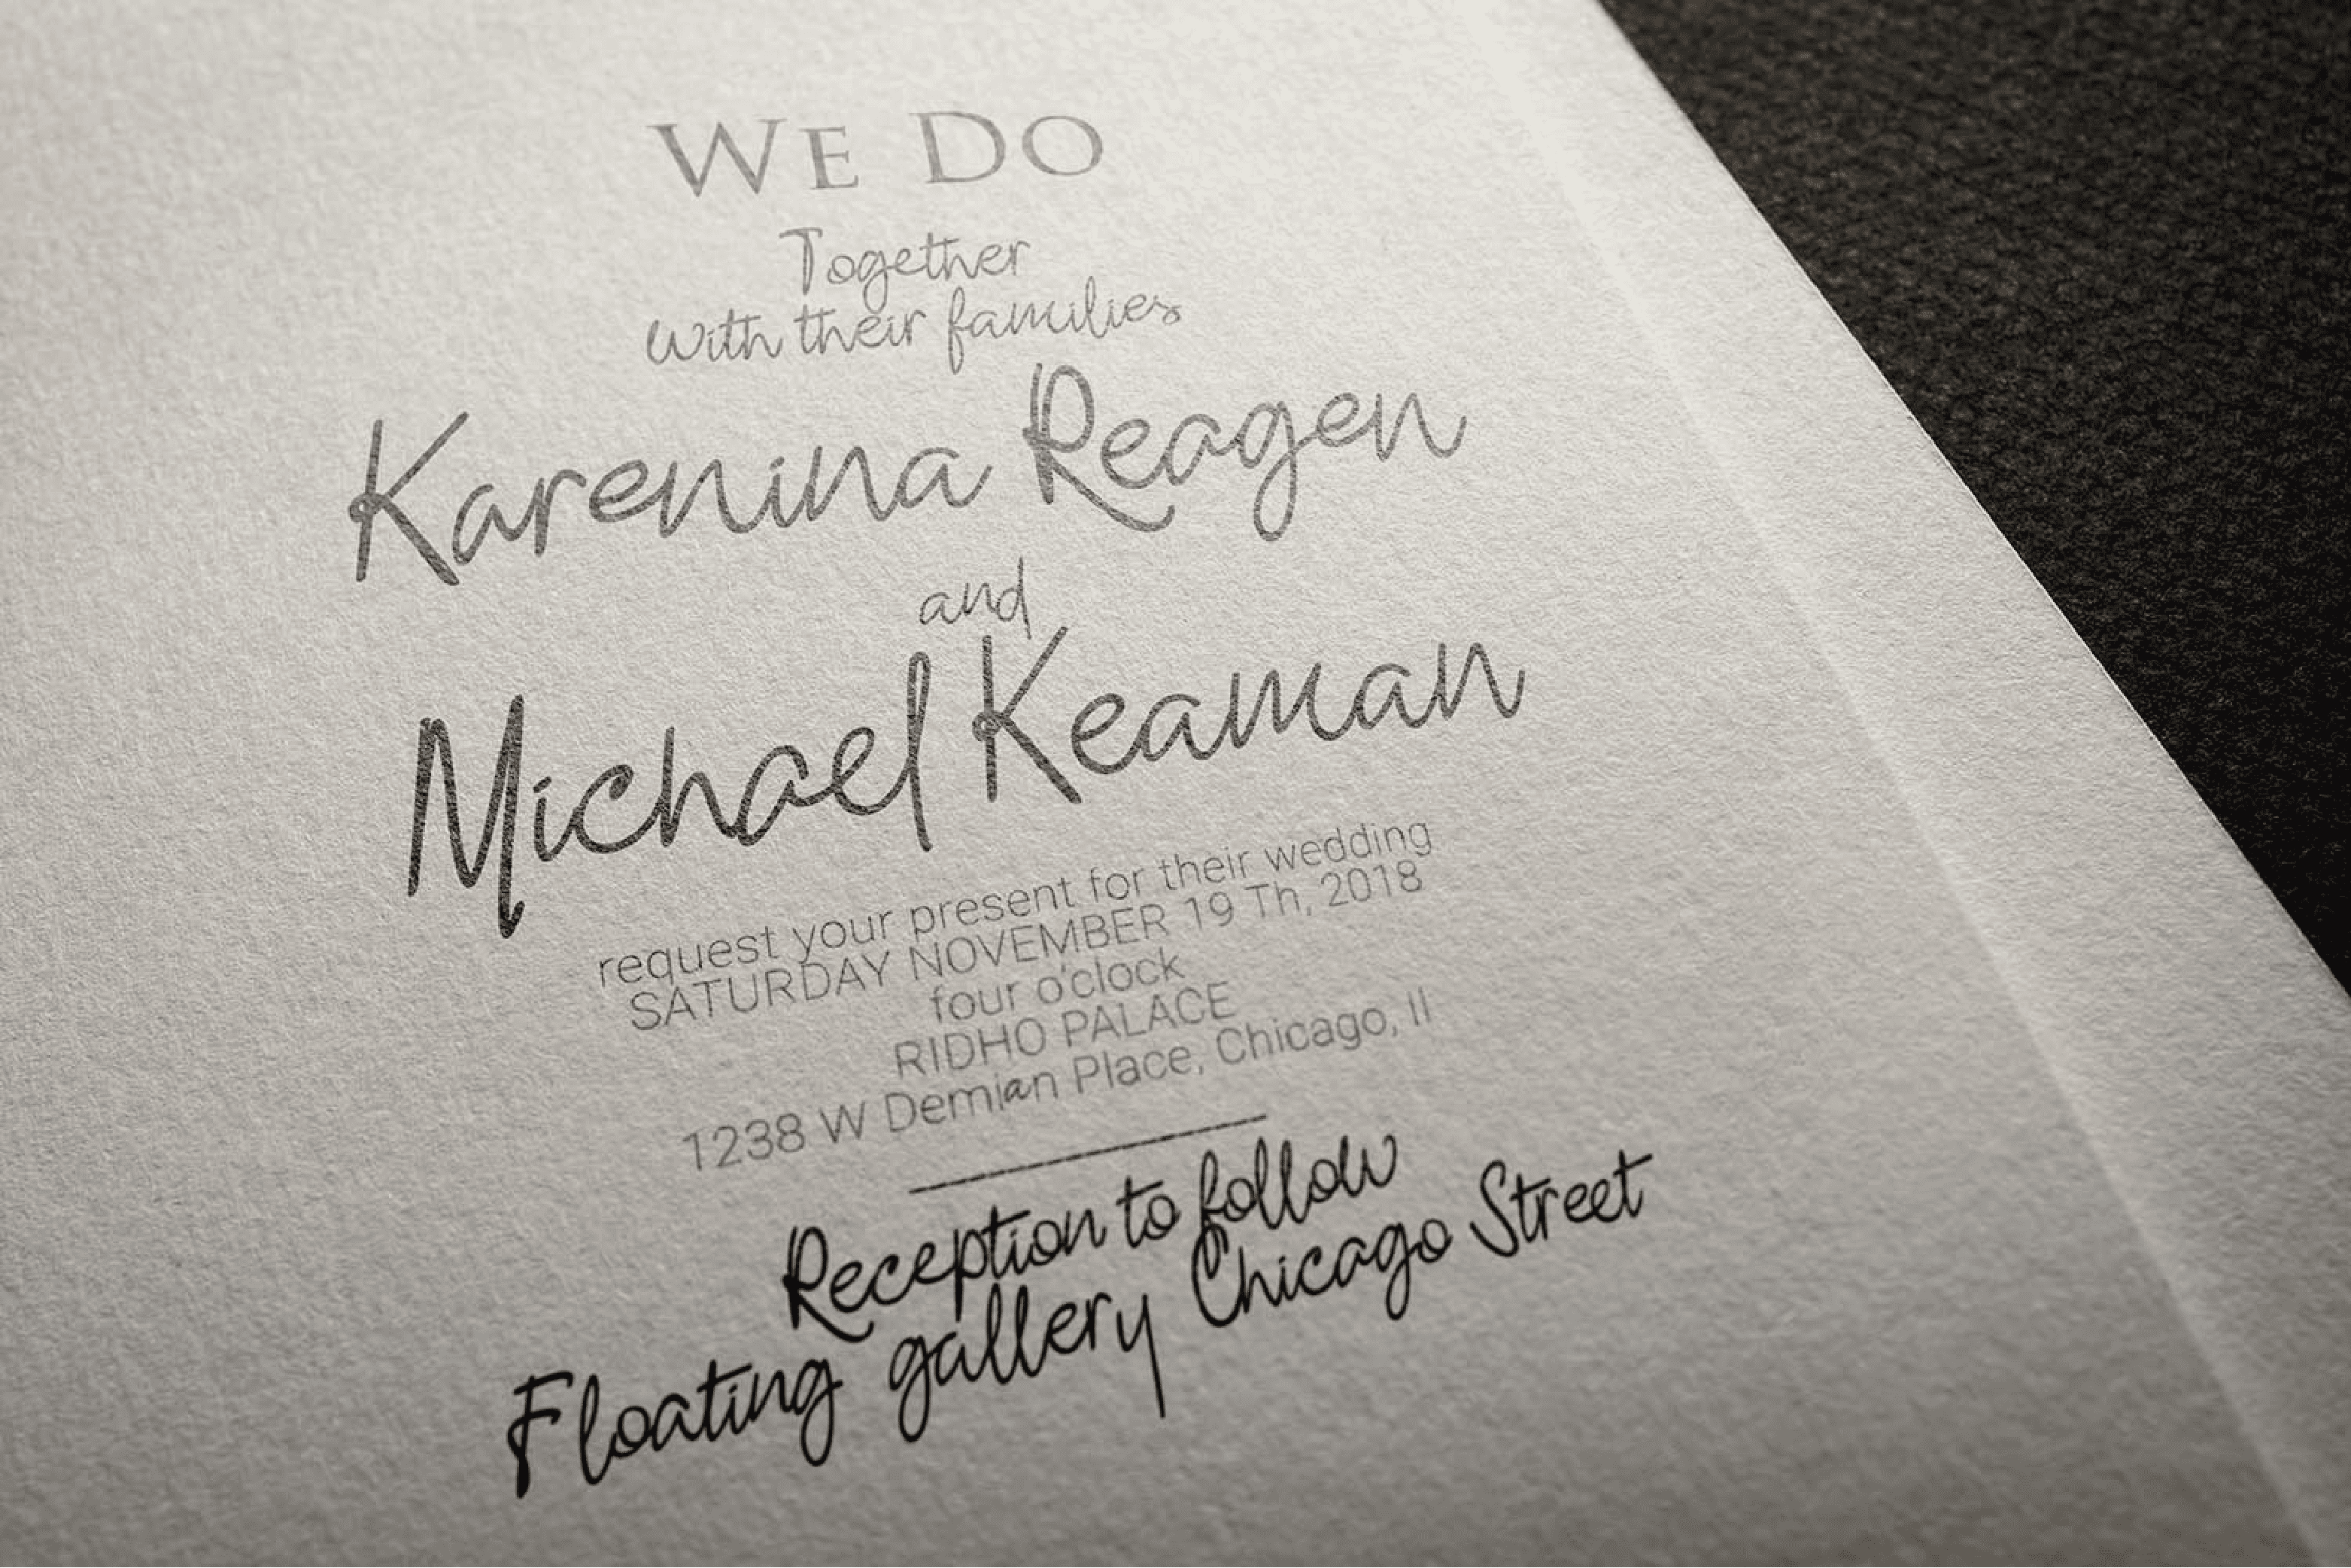 WE DO
Together
with their families
Karenina Reagen
and
Michael Keaman
request your present for their wedding
SATURDAY NOVEMBER 19 Th, 2018
four o'clock
RIDHO PALACE
1238 W Demian Place, Chicago, Il
Reception to follow
Floating gallery Chicago Street